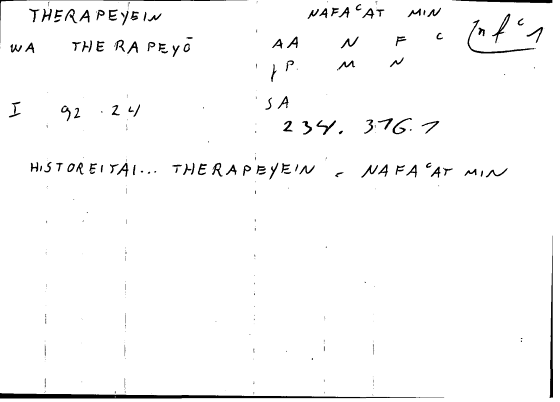 THERAPEYEIN NAFAᶜAT MIN nfᶜ1
WA THERAPEYŌ AA N F C
P. M N
I 92.24 SA
234.376.1
HISTOREITAI... THERAPEYEIN - NAFAᶜAT MIN